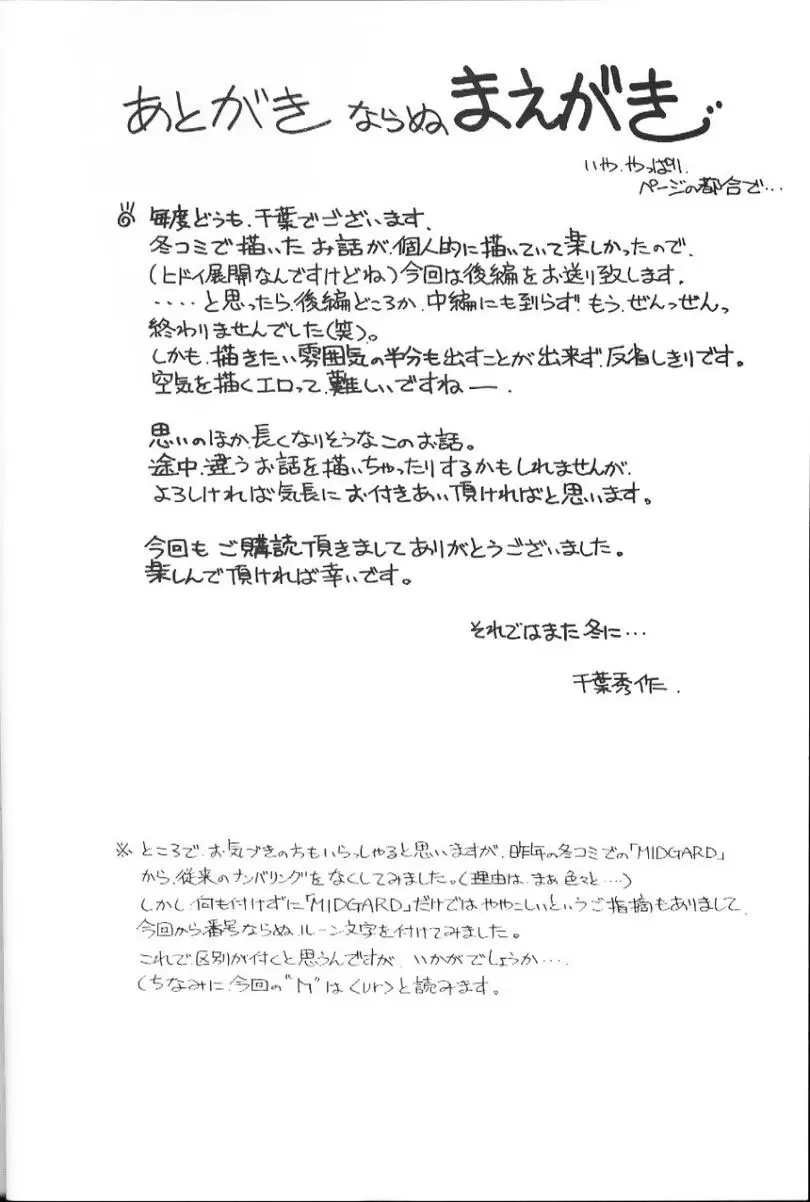 あとがき ならぬ まえがき
いや、やっぱり、
ページの都合で…
毎度どうも、千葉でございます。
冬コミで描いたお話が、個人的に描いていて楽しかったので、
(ヒドイ展開なんですけどね)今回は後編をお送り致します。
‥‥と思ったら、後編どころか、中編にも到らず!もう、ぜんっぜんっ
終わりませんでした(笑)。
しかも、描きたい雰囲気の半分も出すことが出来ず、反省しきりです。
空気を描くエロって、難しいですねー、
思いのほか、長くなりそうなこのお話。
途中、違うお話を描いちゃったりするかもしれませんが、
よろしければ気長にお付きあい頂ければと思います。
今回もご購読頂きましてありがとうございました。
楽しんで頂ければ幸いです。
それではまた冬に…
千葉秀作.
※ところで、お気づきの方もいらっしゃると思いますが、昨年の冬コミでの「MIDGARD」
から、従来のナンバリングをなくしてみました。(理由は、まぁ色々と…)
しかし何も付けずに「MIDGARD」だけではややこしいというご指摘もありまして、
今回から番号ならぬ、ルーン文字を付けてみました。
これで、区別が付くと思うんですが、いかがでしょうか…
(ちなみに、今回の"ᚢ"は<ur>と読みます。